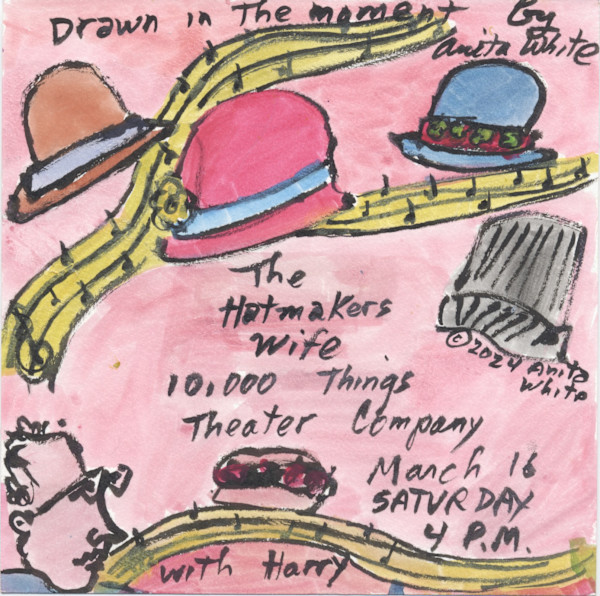 Drawn in The moment by
Anita White
The
Hatmakers
Wife
10,000 Things
Theater Company
March 16
SATURDAY
4 P.M.
with Harry
©2024 Anita
White